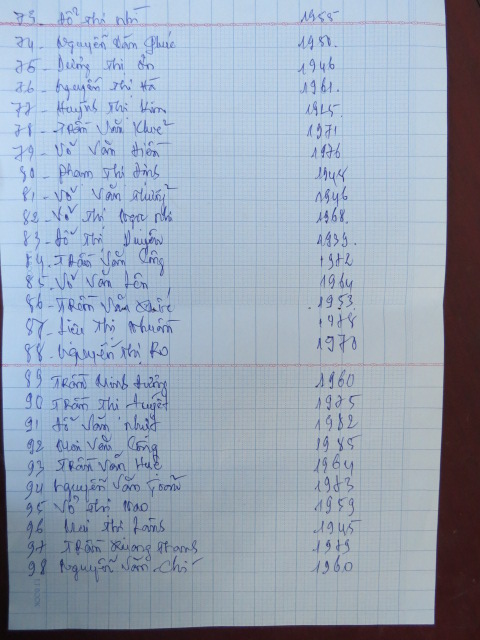 73. Đỗ Thị Nhỉ 1955
74. Nguyễn Văn Phúc 1950.
75- Dương Thị Ơn 1946
76- Nguyễn Thị Hà 1961.
77- Huỳnh Thị Hôm 1925.
78- Trần Văn Khuê 1971
79- Võ Văn Hiền 1976
80- Phạm Thị 1948
81- Võ Văn Thưởng 1946
82- Võ Thị Ngọc Nhi 1968.
83- Đỗ Thị Duyên 1939.
84. Trần Văn Công 1972
85. Võ Văn Lên 1964
86- Trần Văn 1953
87- Liêu Thị Nhuần 1978
88- Nguyễn Thị Ro 1970
89 Trần Minh Đường 1960
90 Trần Thị Tuyết 1975
91 Đỗ Văn Nhựt 1982
92 Mai Văn Công 1985
93 Trần Văn Huệ 1964
94 Nguyễn Văn 1973
95 Võ Thị Bao 1959
96 Mai Thị Lành 1945
97 Trần Quang Thanh 1979
98 Nguyễn Văn Chí 1960